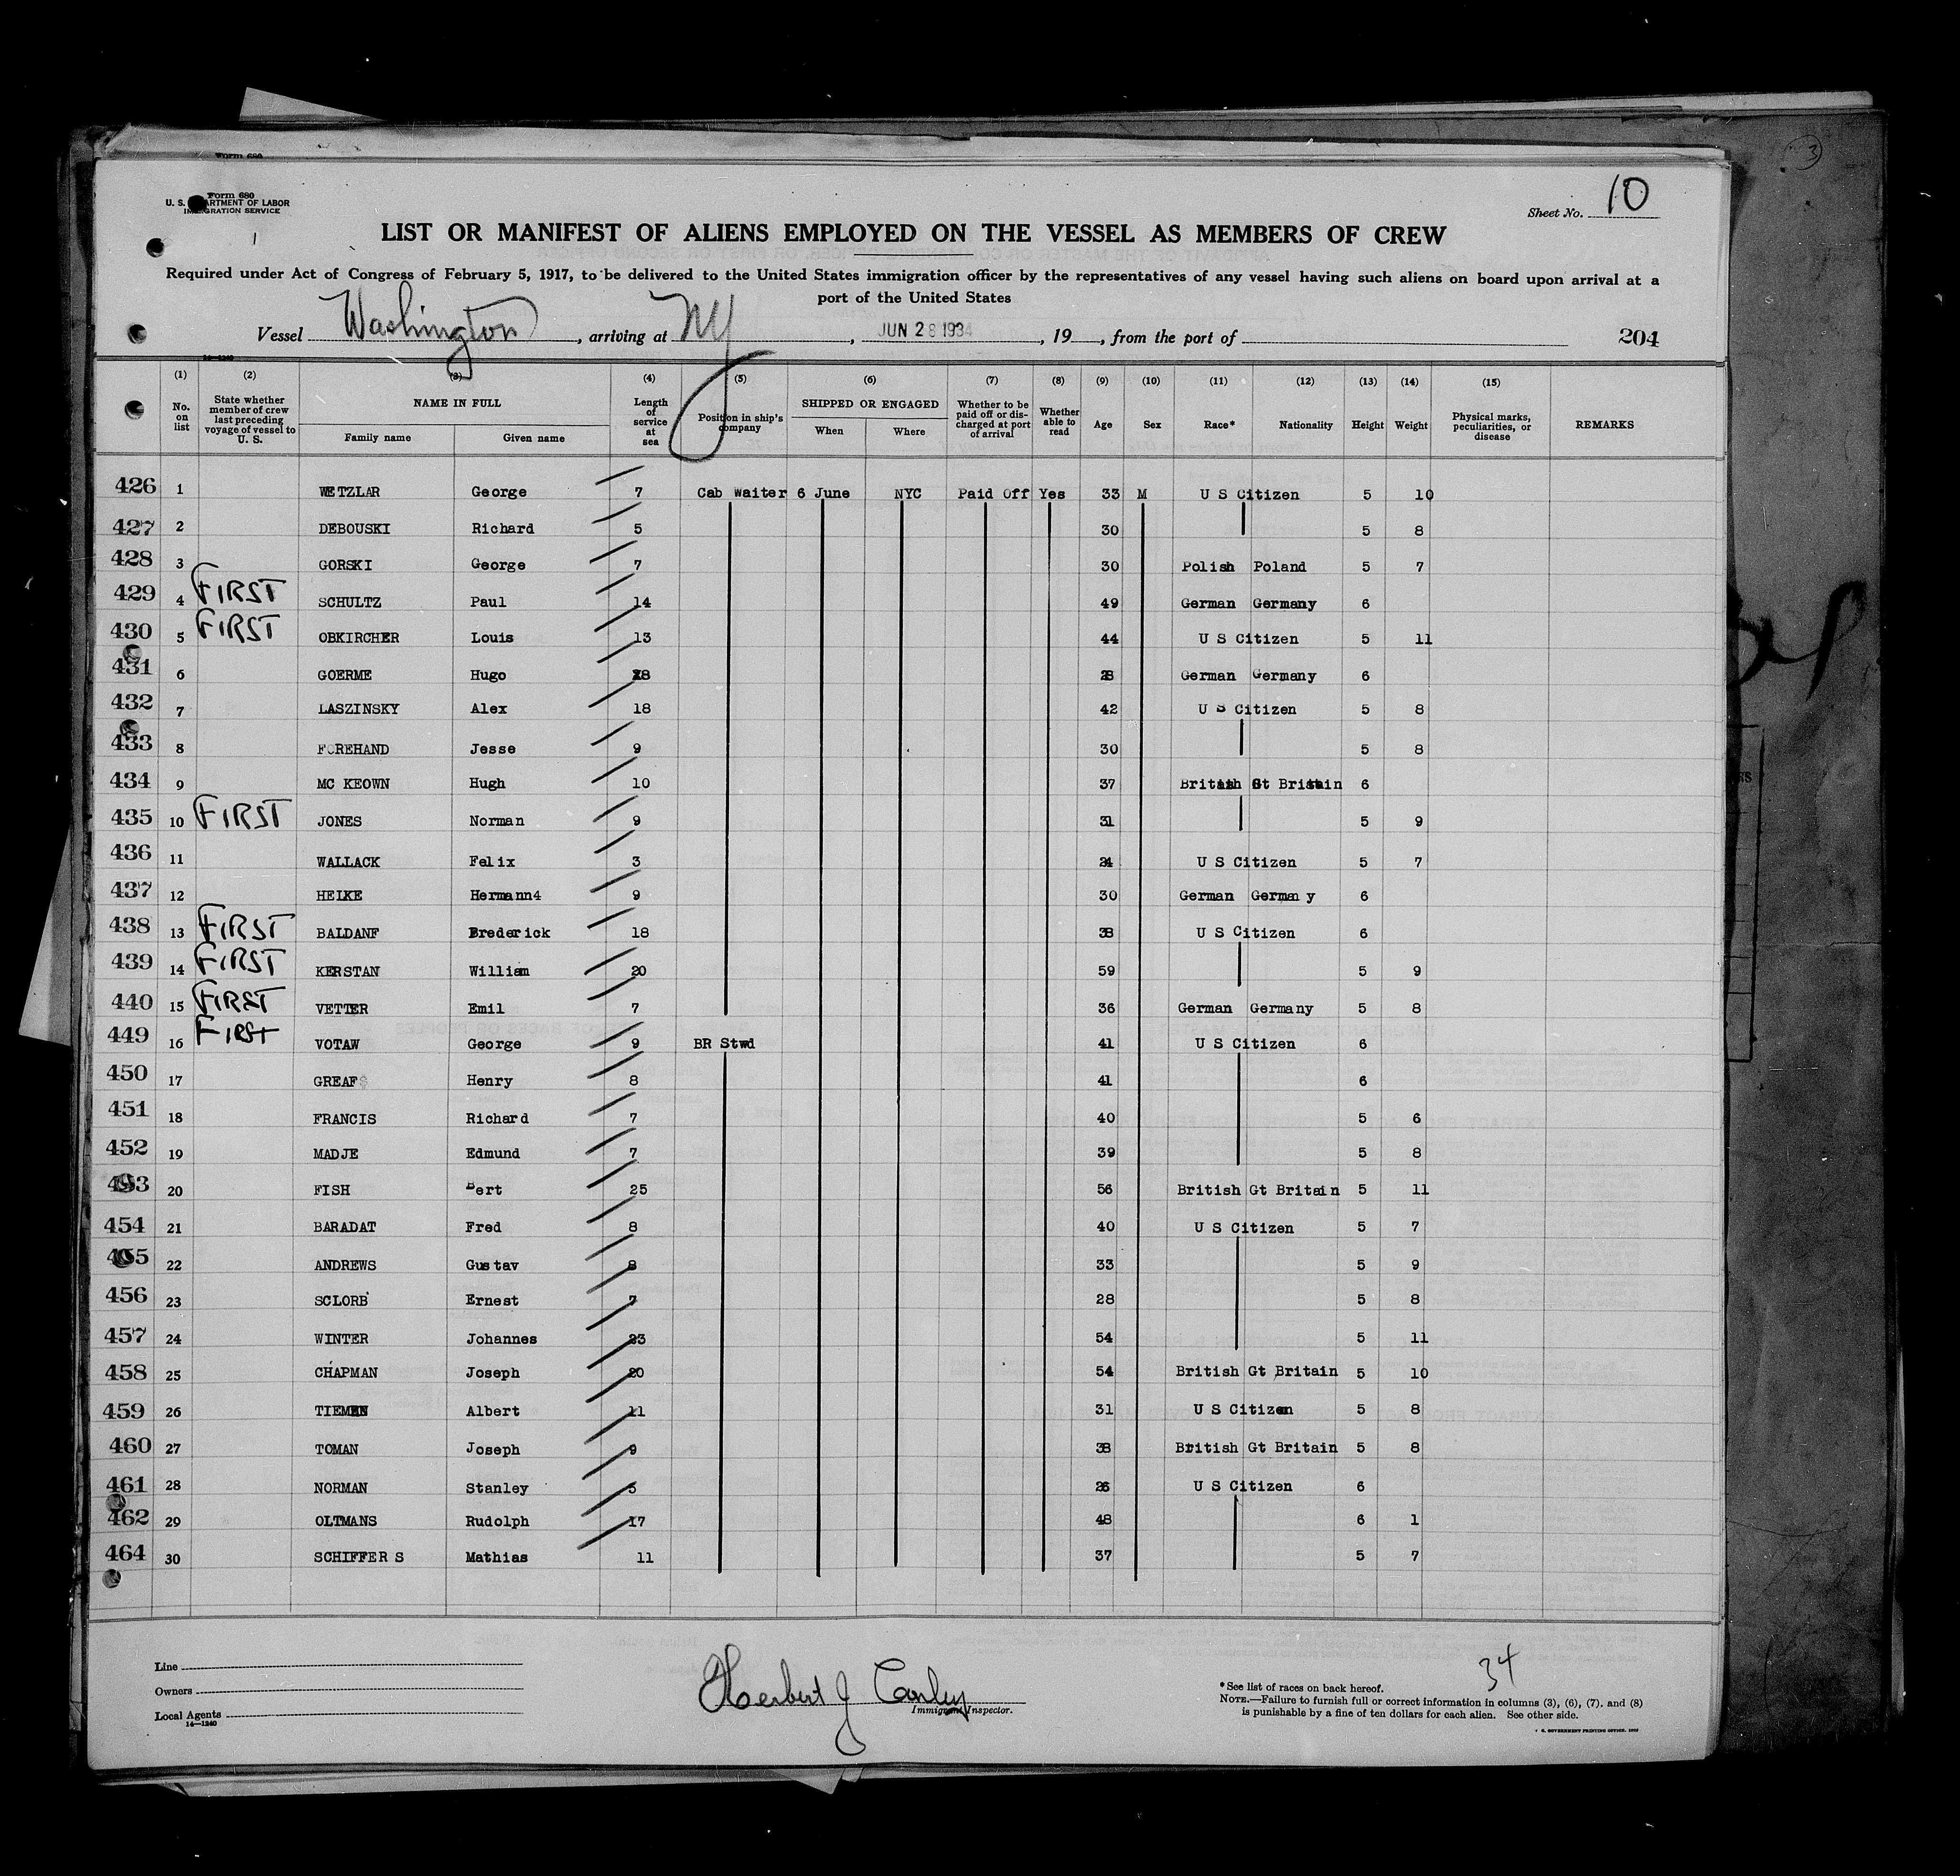 Form 680
Form 680
U. S. DEPARTMENT OF LABOR
IMMIGRATION SERVICE
Sheet No. 10
LIST OR MANIFEST OF ALIENS EMPLOYED ON THE VESSEL AS MEMBERS OF CREW
Required under Act of Congress of February 5, 1917, to be delivered to the United States immigration officer by the representatives of any vessel having such aliens on board upon arrival at a
port of the United States
Vessel Washington, arriving at NY, JUN 28 1934, 19 , from the port of 204
14—1240
(1) (2) (3) (4) (5) (6) (7) (8) (9) (10) (11) (12) (13) (14) (15)
No. on list State whether member of crew last preceding voyage of vessel to U. S. NAME IN FULL Family name Given name Length of service at sea Position in ship's company SHIPPED OR ENGAGED When Where Whether to be paid off or discharged at port of arrival Whether able to read Age Sex Race* Nationality Height Weight Physical marks, peculiarities, or disease REMARKS
426 1 WETZLAR George 7 Cab Waiter 6 June NYC Paid Off Yes 33 M U S Citizen 5 10
427 2 DEBOUSKI Richard 5 30 5 8
428 3 GORSKI George 7 30 Polish Poland 5 7
429 4 FIRST SCHULTZ Paul 14 49 German Germany 6
430 5 FIRST OBKIRCHER Louis 13 44 U S Citizen 5 11
431 6 GOERME Hugo 18 28 German Germany 6
432 7 LASZINSKY Alex 18 42 U S Citizen 5 8
433 8 FOREHAND Jesse 9 30 5 8
434 9 MC KEOWN Hugh 10 37 British Gt Britain 6
435 10 FIRST JONES Norman 9 31 5 9
436 11 WALLACK Felix 3 24 U S Citizen 5 7
437 12 HEIKE Hermann4 9 30 German Germany 6
438 13 FIRST BALDANF Brederick 18 38 U S Citizen 6
439 14 FIRST KERSTAN William 20 59 5 9
440 15 FIRST VETTER Emil 7 36 German Germany 5 8
449 16 FIRST VOTAW George 9 BR Stwd 41 U S Citizen 6
450 17 GREAF Henry 8 41 6
451 18 FRANCIS Richard 7 40 5 6
452 19 MADJE Edmund 7 39 5 8
453 20 FISH Bert 25 56 British Gt Britain 5 11
454 21 BARADAT Fred 8 40 U S Citizen 5 7
455 22 ANDREWS Gustav 8 33 5 9
456 23 SCLORB Ernest 7 28 5 8
457 24 WINTER Johannes 23 54 5 11
458 25 CHAPMAN Joseph 20 54 British Gt Britain 5 10
459 26 TIEMEN Albert 11 31 U S Citizen 5 8
460 27 TOMAN Joseph 9 38 British Gt Britain 5 8
461 28 NORMAN Stanley 5 26 U S Citizen 6
462 29 OLTMANS Rudolph 17 48 6 1
464 30 SCHIFFERS Mathias 11 37 5 7
Line
Owners
Local Agents
14—1240
Herbert J Conley
Immigrant Inspector.
34
*See list of races on back hereof.
NOTE.—Failure to furnish full or correct information in columns (3), (6), (7), and (8)
is punishable by a fine of ten dollars for each alien. See other side.
U. S. GOVERNMENT PRINTING OFFICE